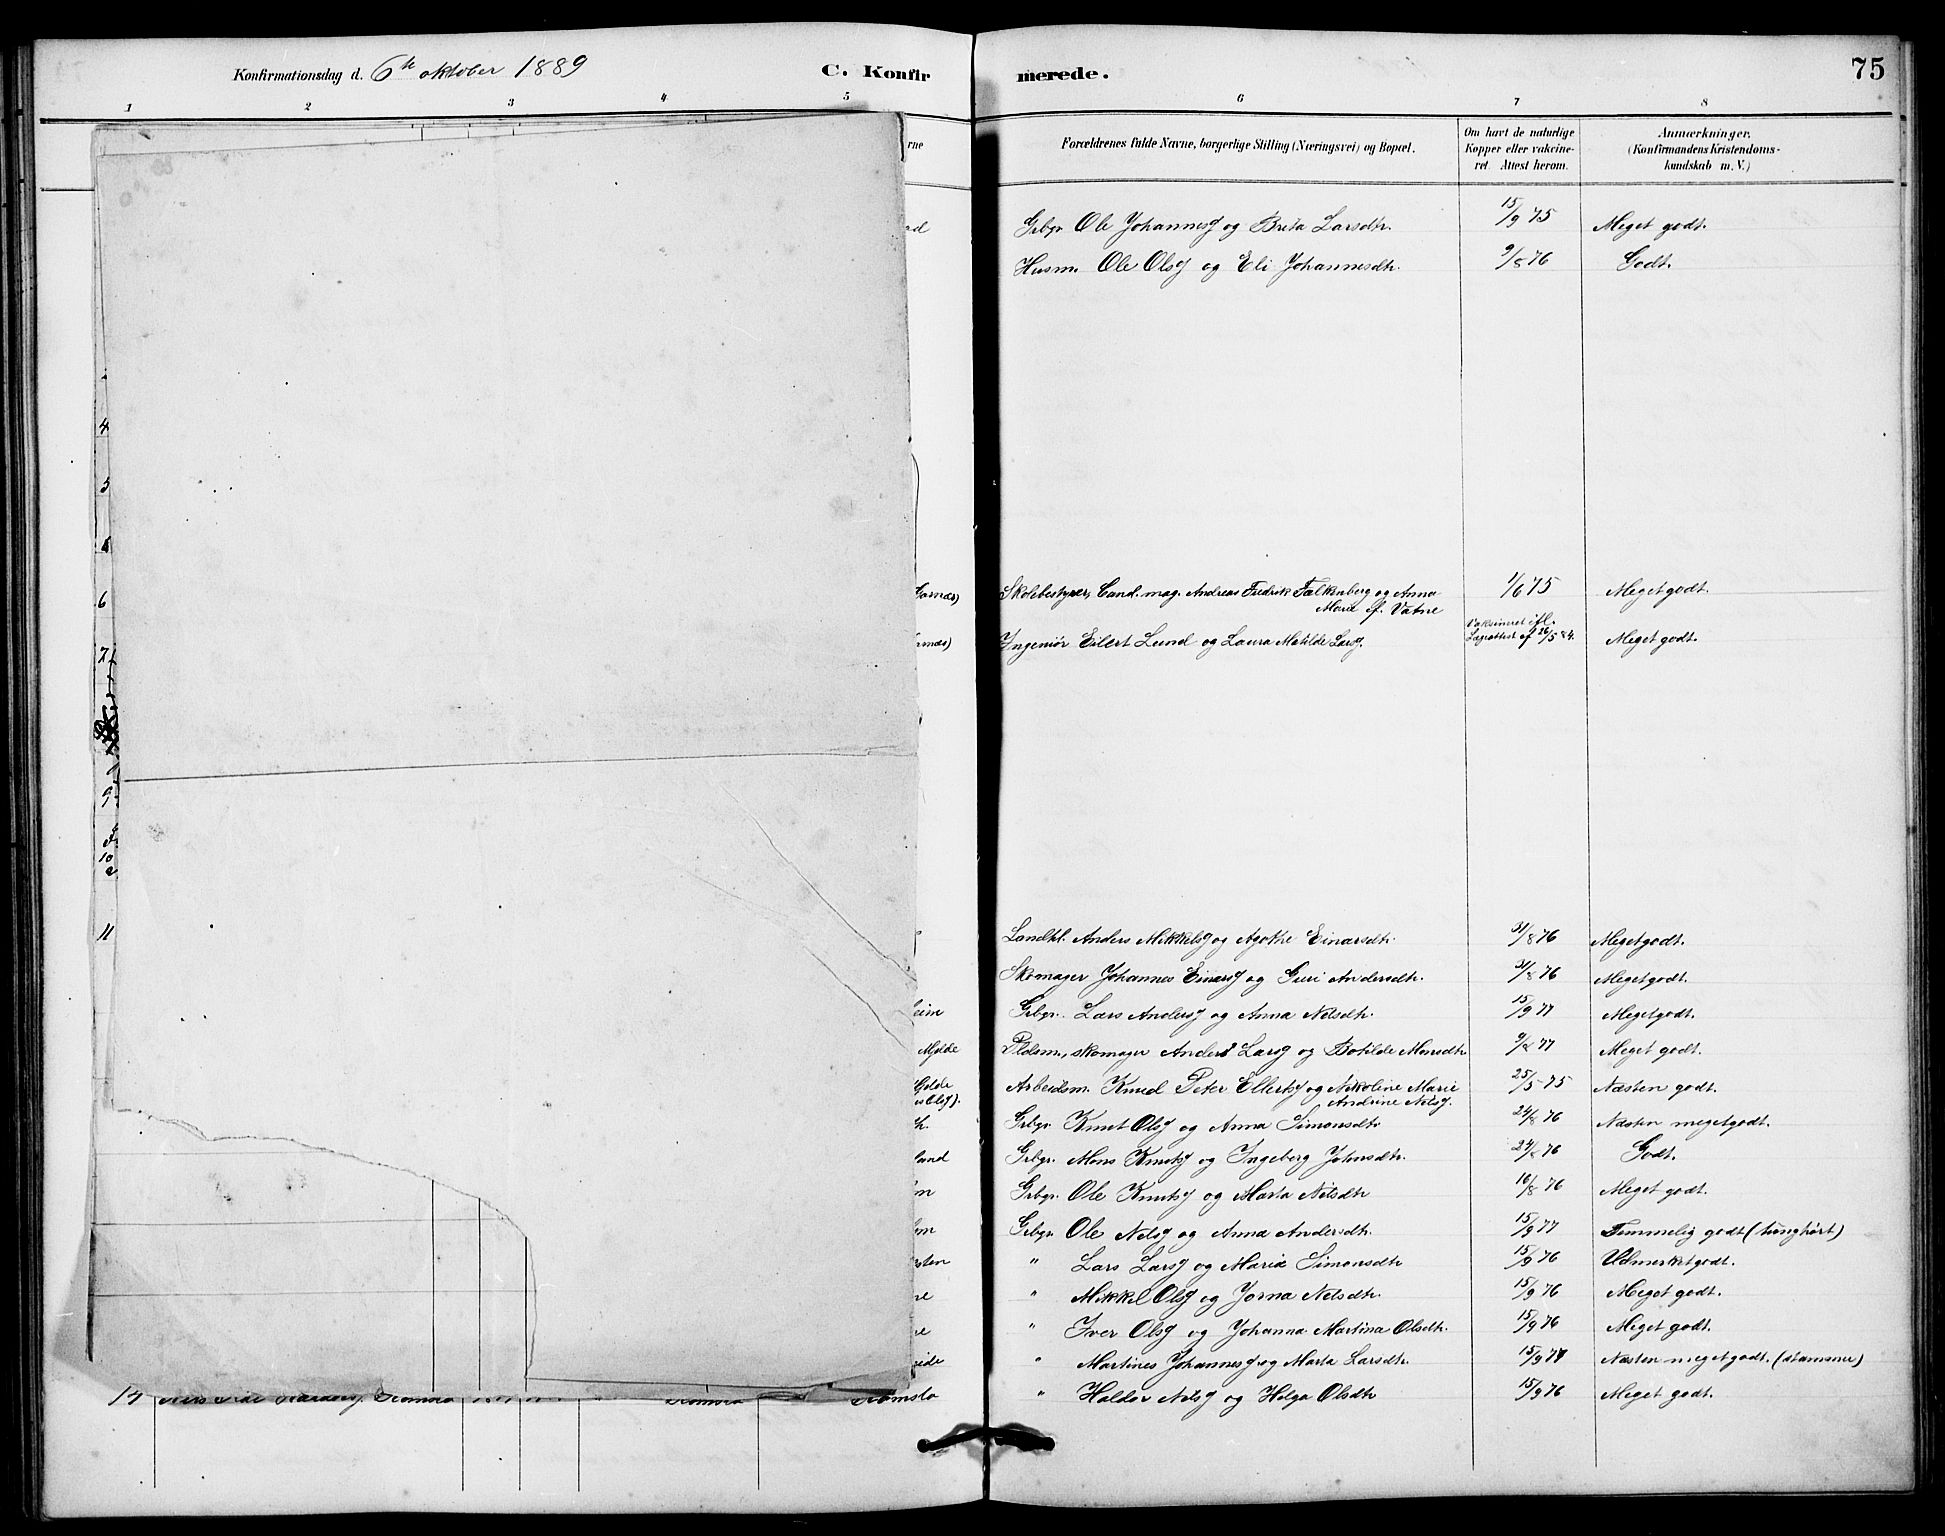 Konfirmationsdag d. 6te oktober 1889
C. Konfirmerede.
75
1 2 3 4 5 6 7 8
Forældrenes fulde Navne, borgerlige Stilling (Næringsvei) og Bopæl.
Om havt de naturlige
Kopper eller vakcine-
ret. Attest herom.
Anmærkninger.
(Konfirmandens Kristendoms-
kundskab m. V.)
Grbgr. Ole Johannesf og Brita Larsdtr. 15/9 75 Meget godt.
Husm. Ole Olsf og Eli Johannesdtr. 9/8 76 Godt.
4
5
6 Skolebestyrer, Cand. mag. Andreas Fredrik Falkenberg og Anna 1/6 75 Meget godt.
Marie f. Vatne
7 Ingeniör Eilert Lund og Laura Matilde Larsf. Vaksineret ifl. Lægeattest af 26/5 84. Meget godt.
9
10
11 Landhl. Anders Mikkelsf og Agothe Einarsdtr. 31/8 76 Meget godt.
Skomager Johannes Einarsf og Guri Andersdtr. 31/8 76 Meget godt.
eim Grbgr. Lars Andersf og Anna Nelsdtr. 15/9 77 Meget godt.
Mjelde Pldsm., skomager Anders Larsf og Botilde Monsdtr 9/8 77 Meget godt.
Gjelde Arbeidsm. Knud Peter Ellertsf og Nikoline Marie 25/5 75 Næsten godt.
Andrine Nelsf.
Grbgr. Knut Olsf og Anna Simonsdtr 24/8 76 Næsten meget godt.
land Grbgr. Mons Knutsf og Ingeborg Johnsdtr. 24/8 76 Godt.
Grbgr. Ole Knutsf og Marta Nelsdtr 16/8 76 Meget godt.
Grbgr. Ole Nelsf og Anna Andersdtr. 15/9 77 Temmelig godt (tunghørt)
" Lars Larsf og Marie Simonsdtr 15/9 76 Udmerket godt.
" Mikkel Olsf og Jorna Nelsdtr. 15/9 76 Meget godt.
" Iver Olsf og Johanna Martina Olsdtr. 15/9 76 Meget godt.
" Martines Johannesf og Marta Larsdtr. 15/9 77 Næsten meget godt. (stammer)
17 " Haldor Nelsf og Helga Olsdtr 15/9 76 Meget godt.